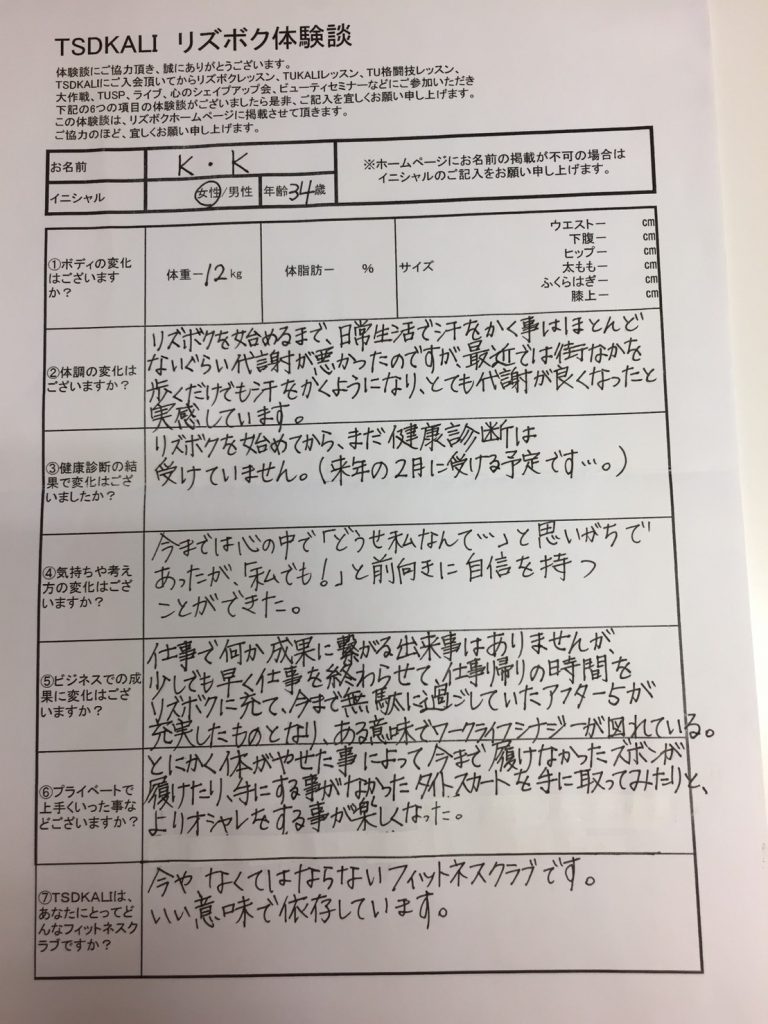 TSDKALI リズボク体験談
体験談にご協力頂き、誠にありがとうございます。
TSDKALIにご入会頂いてからリズボクレッスン、TUKALIレッスン、TU格闘技レッスン、
大作戦、TUSP、ライブ、心のシェイプアップ会、ビューティセミナーなどにご参加いただき
下記の6つの項目の体験談がございましたら是非、ご記入を宜しくお願い申し上げます。
この体験談は、リズボクホームページに掲載させて頂きます。
ご協力のほど、宜しくお願い申し上げます。
お名前 K・K
※ホームページにお名前の掲載が不可の場合は
イニシャルのご記入をお願い申し上げます。
イニシャル 女性/男性 年齢34歳
①ボディの変化
はございます
か?
体重ー12kg 体脂肪ー % サイズ
ウエストー cm
下腹ー cm
ヒップー cm
太ももー cm
ふくらはぎー cm
膝上ー cm
②体調の変化は
ございますか?
リズボクを始めるまで、日常生活で汗をかく事はほとんど
ないぐらい代謝が悪かったのですが、最近では街なかを
歩くだけでも汗をかくようになり、とても代謝が良くなったと
実感しています。
③健康診断の結
果で変化はござ
いましたか?
リズボクを始めてから、まだ健康診断は
受けていません。(来年の2月に受ける予定です…。)
④気持ちや考え
方の変化はござ
いますか?
今までは心の中で「どうせ私なんて…」と思いがちで
あったが、「私でも!」と前向きに自信を持つ
ことができた。
⑤ビジネスでの成
果に変化はござ
いますか?
仕事で何か成果に繋がる出来事はありませんが、
少しでも早く仕事を終わらせて、仕事帰りの時間を
リズボクに充て、今まで無駄に過ごしていたアフター5が
充実したものとなり、ある意味でワークライフシナジーが図れている。
⑥プライベートで
上手くいった事な
どございますか?
とにかく体がやせた事によって今まで履けなかったズボンが
履けたり、手にする事がなかったタイトスカートを手に取ってみたりと、
よりオシャレをする事が楽しくなった。
⑦TSDKALIは、
あなたにとってど
んなフィットネスク
ラブですか?
今やなくてはならないフィットネスクラブです。
いい意味で依存しています。